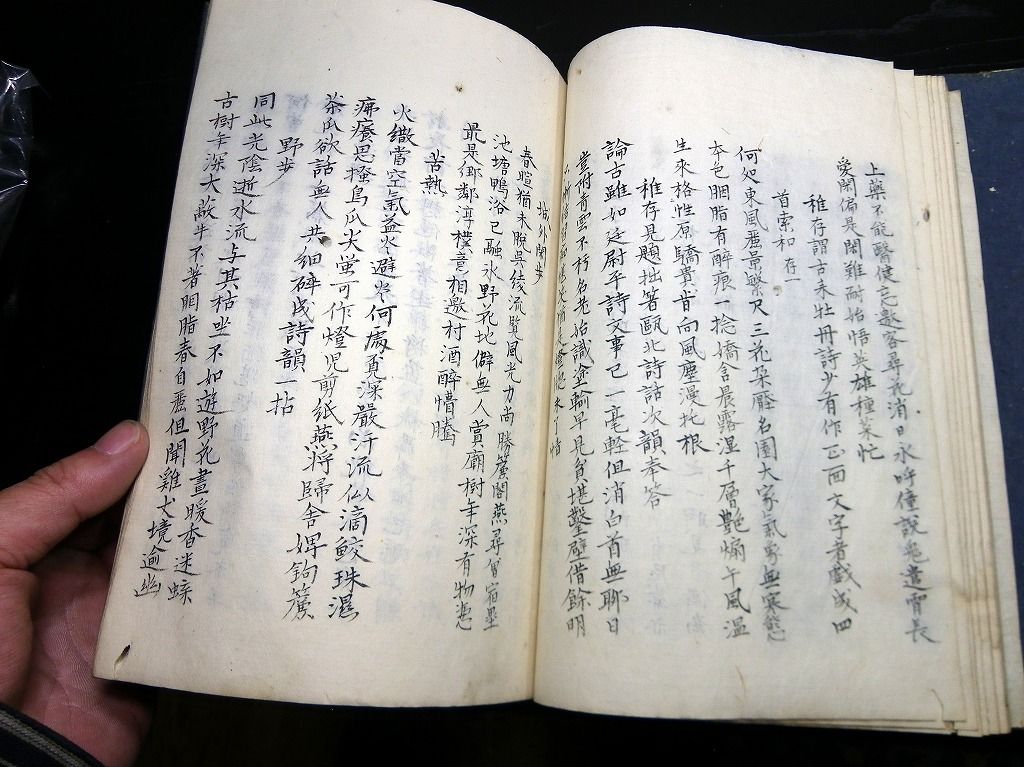 上藥不能醫健忘邀客尋花消日永呼僮說鬼遣宵長
愛閑偏是閑難耐始悟英雄種菜忙
稚存謂古来牡丹詩少有作正面文字者戲成四
首索和存一
何処東風麗景繁尺三花朵壓名園大家氣象無寒態
本色胭脂有醉痕一捻嬌含晨露濕千層艷煽午風温
生來格性原驕貴肯向風塵漫托根
稚存見題拙著甌北詩話次韻奉答
論古雖如廷尉平詩文事已一毫輕但消白首無聊日
豈附青雲不朽名老始識塗輸早見貧堪鑿壁借餘明
城外閑步
春暄猶未脫吳綾流覽風光力尚勝簾閣燕尋曾宿壘
池塘鴨浴已融氷野花地僻無人賞廟樹年深有物憑
最是鄉鄰淳樸意相邀村酒醉懵騰
苦熱
火繖當空氣益炎避炎何處覓深嚴汗流似滴鮫珠濕
痱癢思搔鳥爪尖螢可作燈児剪紙燕將歸舍婢鉤簾
茶瓜欲話無人共細碎成詩韻一拈
野步
同此光陰逝水流与其枯坐不如遊野花晝暖香迷蝶
古樹年深大蔽牛不著胭脂春自麗但聞雞犬境逾幽